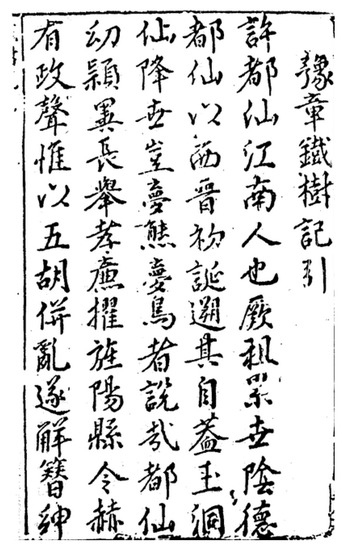 豫章鐵樹記引
許都仙江南人也厥祖累世陰德
都仙以西晉初誕遡其自蓋玉洞
仙降世豈夢熊夢鳥者說哉都仙
幼穎異長舉孝廉擢旌陽縣令赫
有政聲惟以五胡併亂遂解簪紳